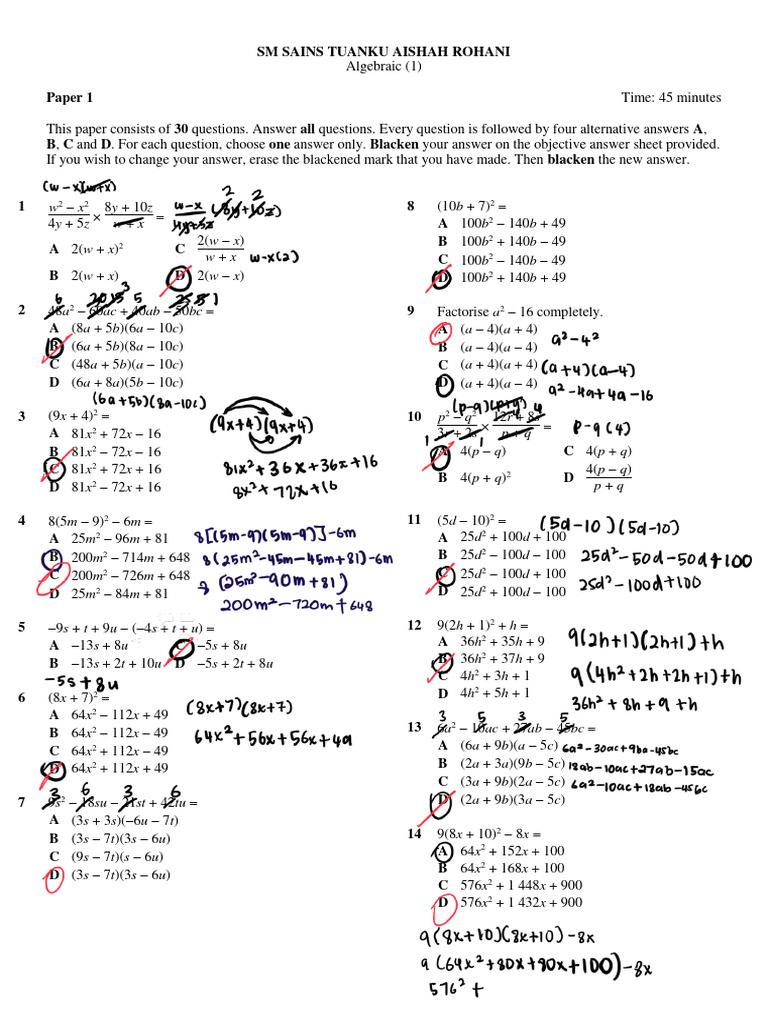 SM SAINS TUANKU AISHAH ROHANI
Algebraic (1)
Paper 1 Time: 45 minutes
This paper consists of 30 questions. Answer all questions. Every question is followed by four alternative answers A,
B, C and D. For each question, choose one answer only. Blacken your answer on the objective answer sheet provided.
If you wish to change your answer, erase the blackened mark that you have made. Then blacken the new answer.
(w-x)(w+x)
1 w² − x² / 4y + 5z × 8y + 10z / w + x =
w-x
w-x(2)
A 2(w + x)² C 2(w − x) / w + x
B 2(w + x) D 2(w − x)
2 48a² − 60ac + 40ab − 50bc =
A (8a + 5b)(6a − 10c)
B (6a + 5b)(8a − 10c)
C (48a + 5b)(a − 10c)
D (6a + 8a)(5b − 10c)
(6a+5b)(8a-10c)
3 (9x + 4)² =
A 81x² + 72x − 16
B 81x² − 72x − 16
C 81x² + 72x + 16
D 81x² − 72x + 16
(9x+4)(9x+4)
81x²+36x+36x+16
8x²+72x+16
4 8(5m − 9)² − 6m =
A 25m² − 96m + 81
B 200m² − 714m + 648
C 200m² − 726m + 648
D 25m² − 84m + 81
8[(5m-9)(5m-9)]-6m
8(25m²-45m-45m+81)-6m
8(25m²-90m+81)
200m²-720m+648
5 −9s + t + 9u − (−4s + t + u) =
A −13s + 8u C −5s + 8u
B −13s + 2t + 10u D −5s + 2t + 8u
-5s+8u
6 (8x + 7)² =
A 64x² − 112x + 49
B 64x² − 112x − 49
C 64x² + 112x − 49
D 64x² + 112x + 49
(8x+7)(8x+7)
64x²+56x+56x+49
3 6 3 6
7 9s² − 18su − 21st + 42tu =
A (3s + 3s)(−6u − 7t)
B (3s − 7t)(3s − 6u)
C (9s − 7t)(s − 6u)
D (3s − 7t)(3s − 6u)
8 (10b + 7)² =
A 100b² − 140b + 49
B 100b² + 140b − 49
C 100b² − 140b − 49
D 100b² + 140b + 49
9 Factorise a² − 16 completely.
A (a − 4)(a + 4)
B (a − 4)(a − 4)
C (a + 4)(a + 4)
D (a + 4)(a − 4)
a²-4²
(a+4)(a-4)
a²-4a+4a-16
(p-q)(p+q)
10 p² − q² / 3r + 2s × 12r + 8s / p + q =
p-q(4)
A 4(p − q) C 4(p + q)
B 4(p + q)² D 4(p − q) / p + q
11 (5d − 10)² =
A 25d² + 100d + 100
B 25d² − 100d − 100
C 25d² − 100d + 100
D 25d² + 100d − 100
(5d-10)(5d-10)
25d²-50d-50d+100
25d²-100d+100
12 9(2h + 1)² + h =
A 36h² + 35h + 9
B 36h² + 37h + 9
C 4h² + 3h + 1
D 4h² + 5h + 1
9(2h+1)(2h+1)+h
9(4h²+2h+2h+1)+h
36h²+8h+9+h
3 5 3 5
13 6a² − 10ac + 27ab − 45bc =
A (6a + 9b)(a − 5c) 6a²-30ac+9ba-45bc
B (2a + 3a)(9b − 5c) 18ab-10ac+27ab-15ac
C (3a + 9b)(2a − 5c) 6a²-10ac+18ab-45bc
D (2a + 9b)(3a − 5c)
14 9(8x + 10)² − 8x =
A 64x² + 152x + 100
B 64x² + 168x + 100
C 576x² + 1 448x + 900
D 576x² + 1 432x + 900
9(8x+10)(8x+10)-8x
9(64x²+80x+80x+100)-8x
576²+